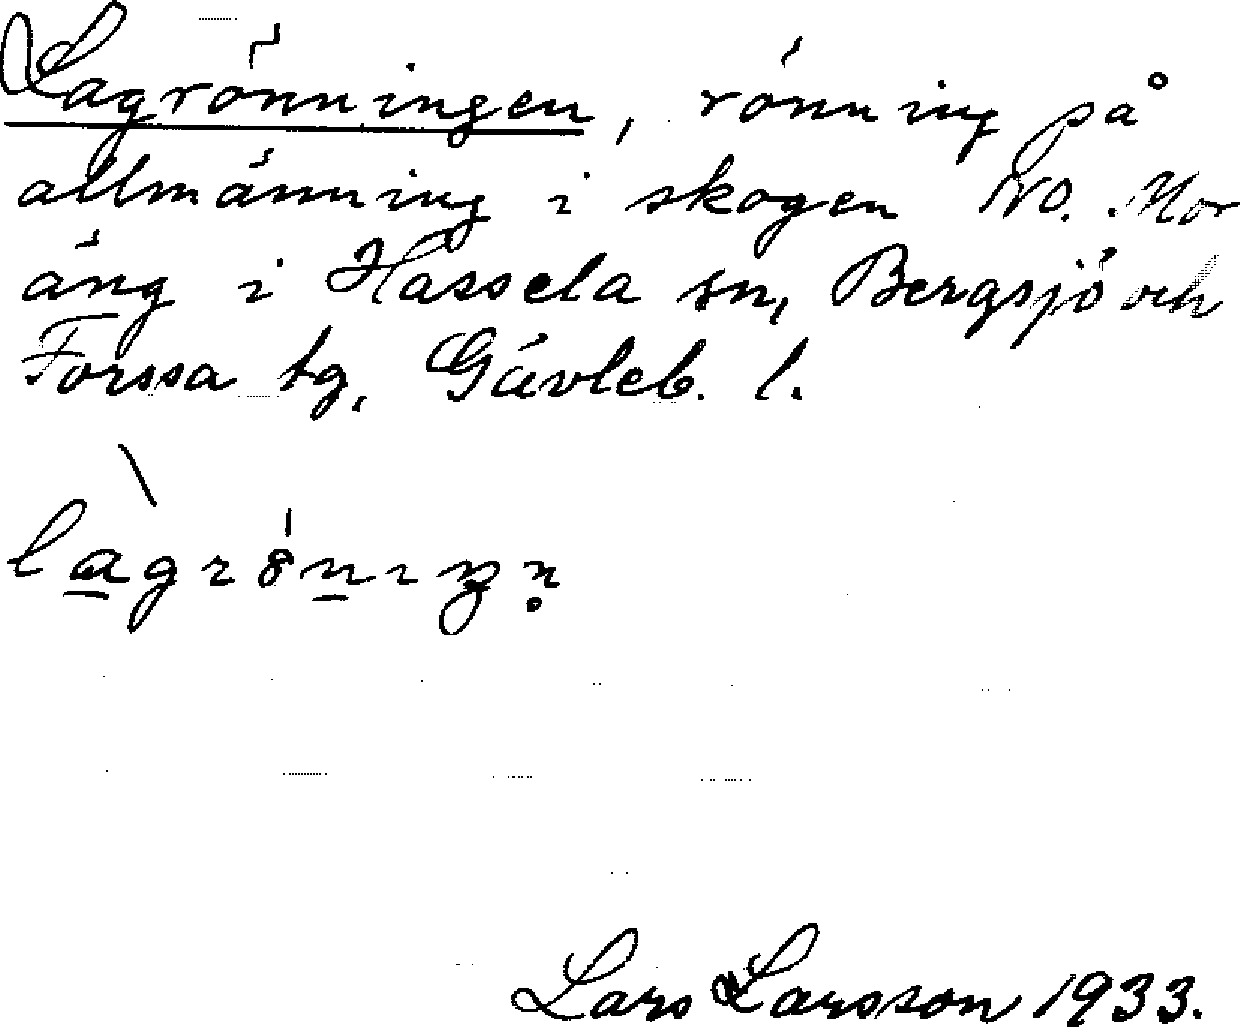 Lagrönningen, rönning på
allmänning i skogen NO. Mor
äng i Hassela sn, Bergsjö och
Forssa tg, Gävleb. l.
Lars Larsson 1933.